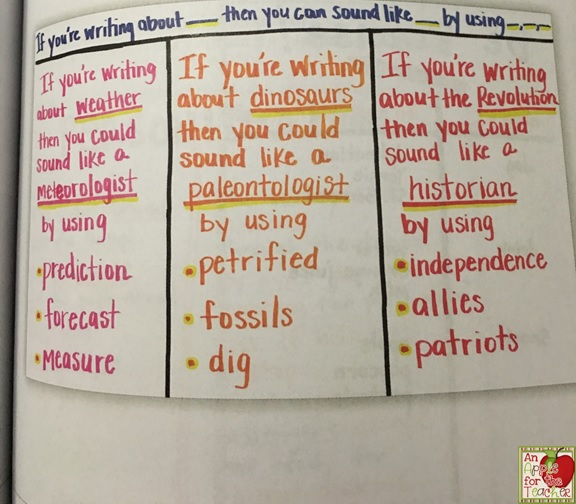 If you're writing about ___ then you can sound like __ by using _,_,_
If you're writing
about weather
then you could
sound like a
meteorologist
by using
•prediction
•forecast
•Measure
If you're writing
about dinosaurs
then you could
sound like a
paleontologist
by using
•petrified
•fossils
•dig
If you're writing
about the Revolution
then you could
sound like a
historian
by using
•independence
•allies
•patriots
An
Apple
for the
Teacher